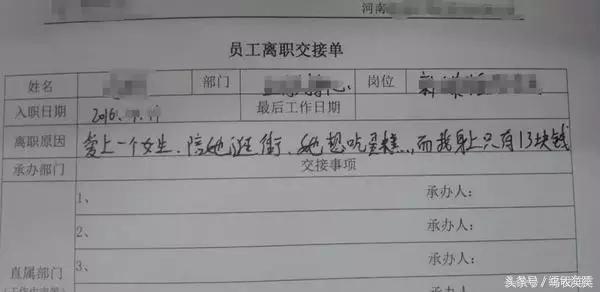 河南
员工离职交接单
姓名 部门 岗位
入职日期 2016. 最后工作日期
离职原因 爱上一个女生、陪她逛街、她想吃蛋糕...,而我身上只有13块钱
承办部门 交接事项
1、 承办人:
2、 承办人:
直属部门 3、 承办人:
头条号